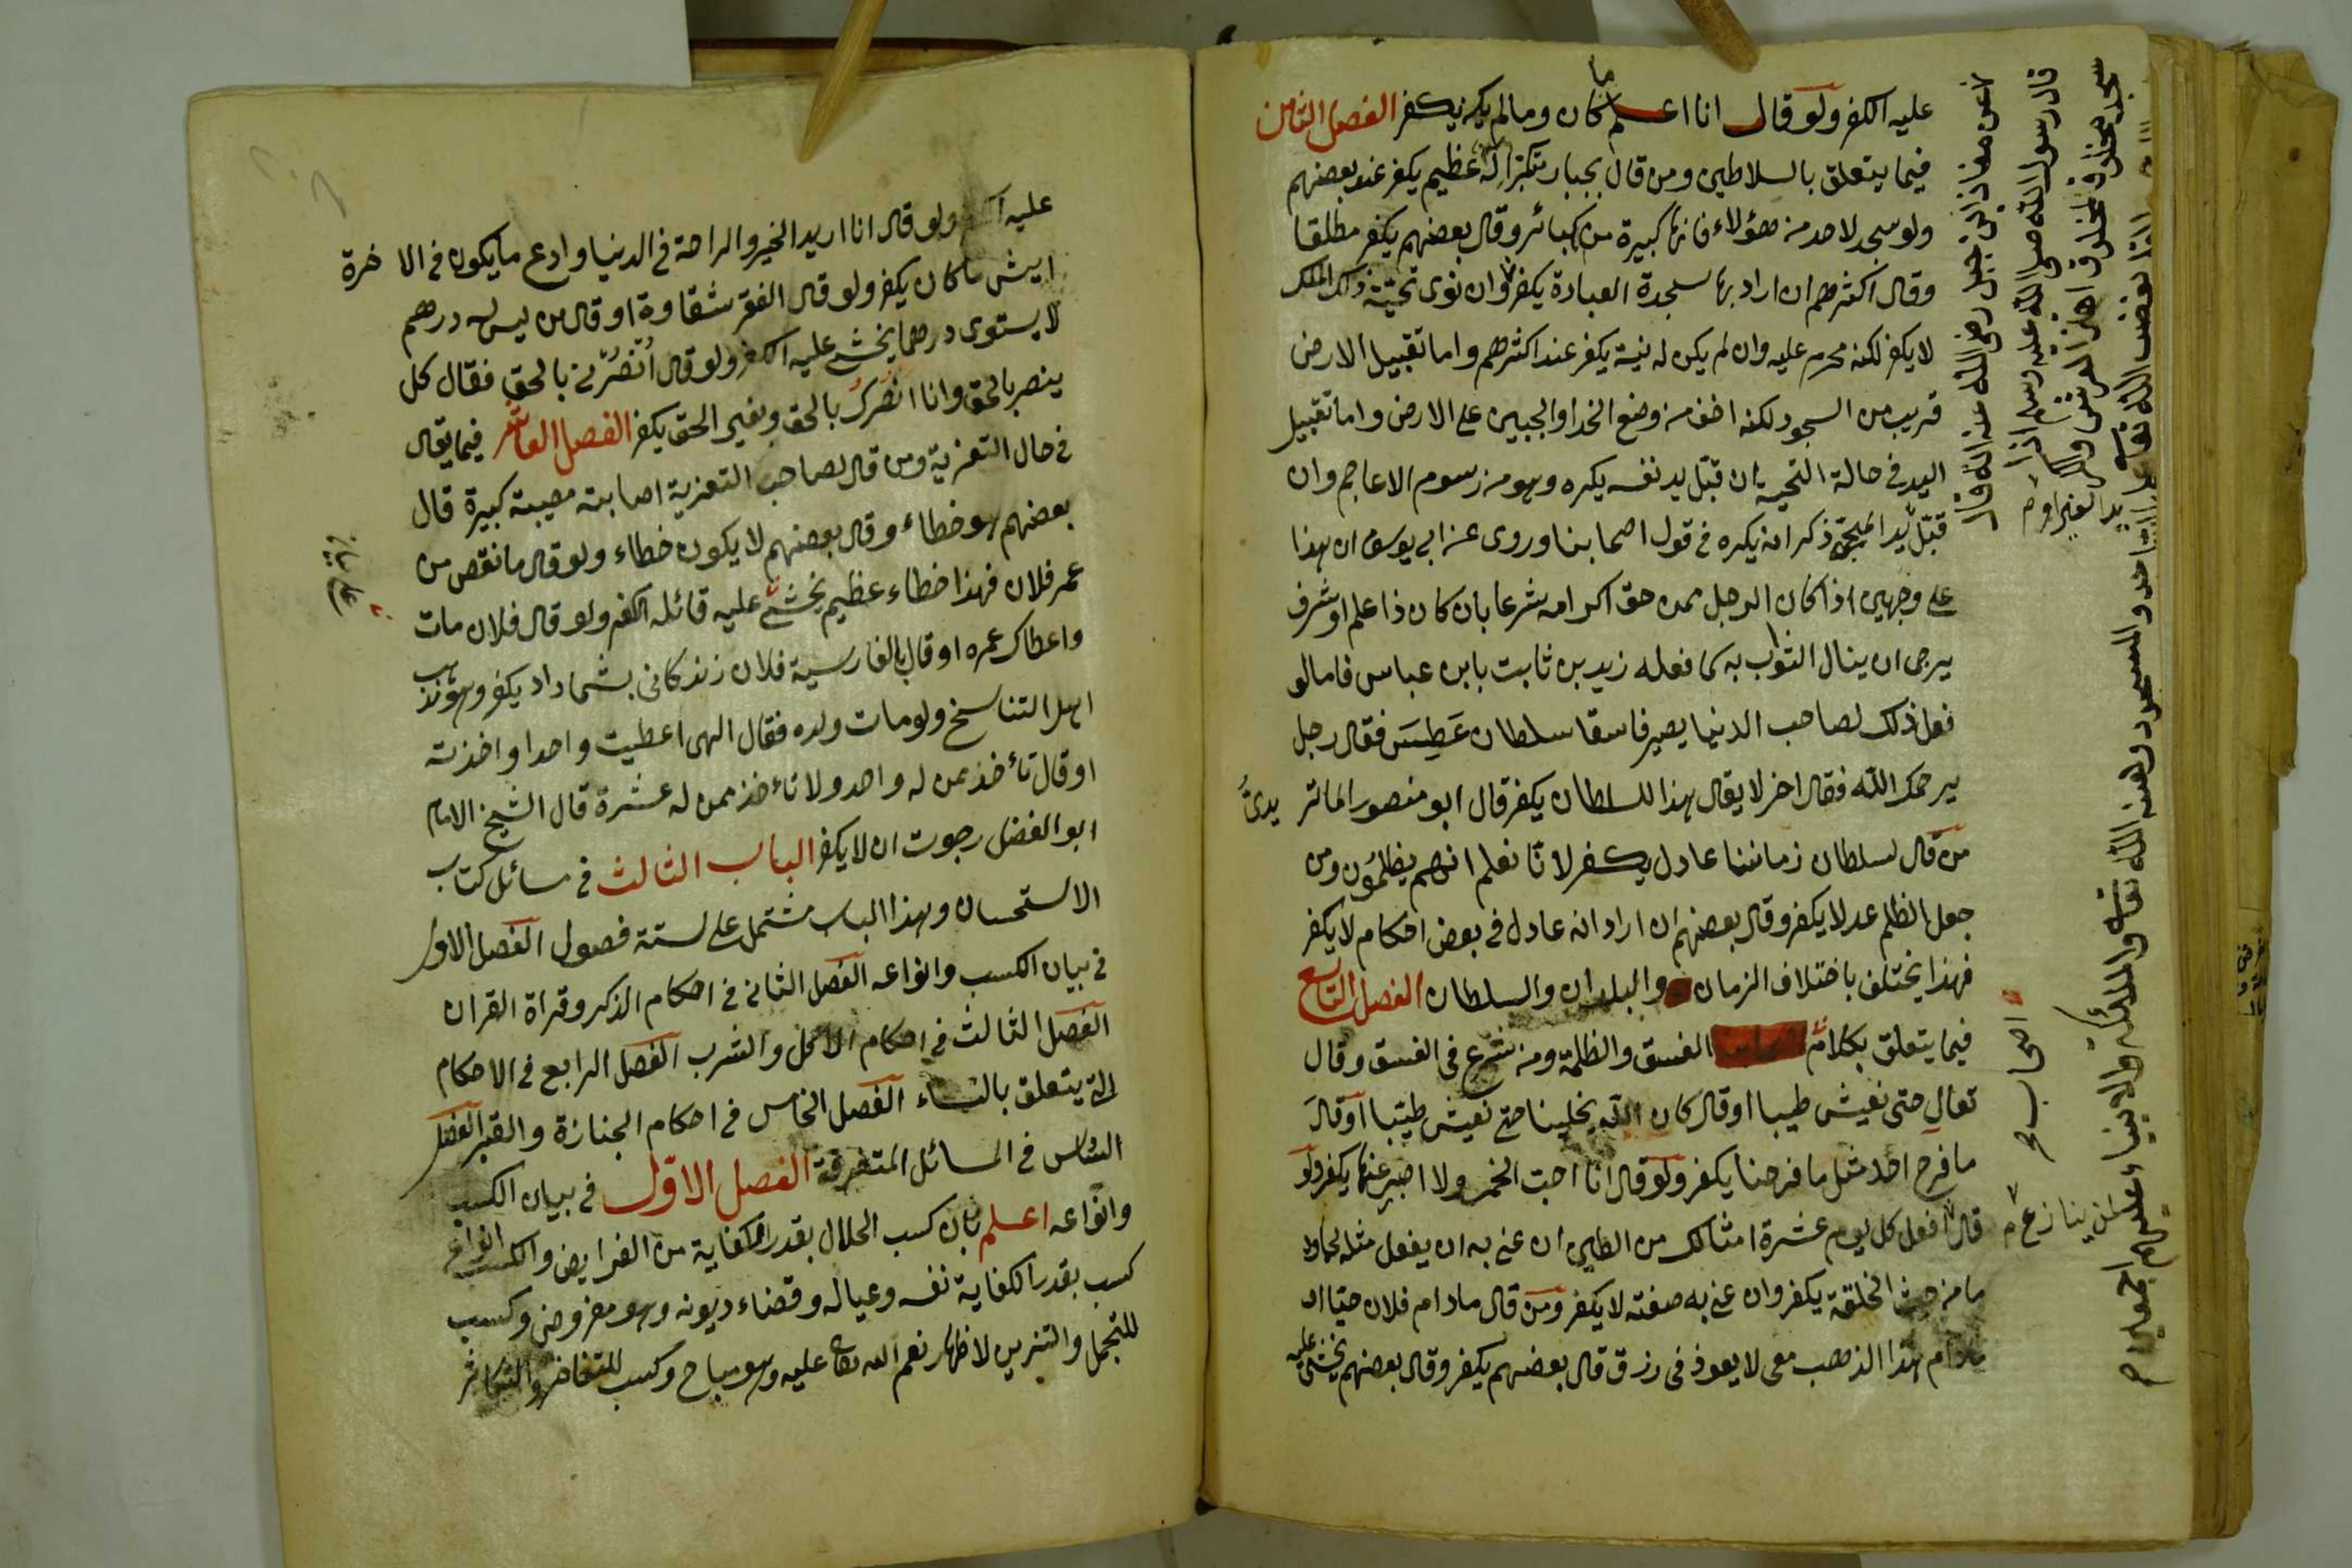 عليه الكفر ولو قال انا اعلم ما كان وما لم يكن يكفر الفصل الثامن
فيما يتعلق بالسلاطين ومن قال بجبار متكبر اله عظيم يكفر عند بعضهم
ولو سجد لاحد من هؤلاء فانها كبيرة من الكبائر وقال بعضهم يكفر مطلقا
وقال اكثرهم ان اراد بها سجدة العبادة يكفر وان نوى تحيّته ذلك الملك
لا يكفر لكنه محرم عليه وان لم يكن له نية يكفر عند اكثرهم واما تقبيل الارض
قريب من السجود لكنه اخف من وضع الخد او الجبين على الارض واما تقبيل
اليد في حالة التحية ان قبّل يد نفسه يكره وهو من رسوم الاعاجم وان
قبّل يد ذكر انه يكره في قول اصحابنا وروى عن ابي يوسف ان هذا
على وجهين اذا كان الرجل ممن حق اكرامه شرعا بان كان ذا علم او شرف
يرجى ان ينال الثواب به كما فعله زيد بن ثابت بابن عباس فاما لو
فعل ذلك لصاحب الدنيا يصير فاسقا سلطان عَطِسَ فقال رجل
يرحمك الله فقال اخر لا يقال هذا للسلطان يكفر قال ابو منصور الماتر يدىّ
من قال لسلطان زماننا عادل يكفر لانّا نعلم انهم يظلمُون ومن
جعل الظلم عدلا يكفر وقال بعضهم ان اراد انه عادل في بعض احكام لا يكفر
فهذا يختلف باختلاف الزمان والبلدان والسلطان الفصل التاسع
فيما يتعلق بكلام الفسق والظلمة ومن شرع في الفسق وقال
تعال حتى نعيش طيبا او قال كان الله يخلينا حتى نعيش طيّبا او قال
ما فرح احد مثل ما فرحنا يكفر ولو قال انا احبّ الخمر ولا اصبر عنها يكفر ولو
قال افعل كل يوم عشرة امثالك من الطين ان عنى به ان يفعل مثله
ما من حيث الخلقة يكفر وان عنى به صفته لا يكفر ومن قال مادام فلان حيّا او
مادام هذا الذهب معى لا يعوذ في رزق قال بعضهم يكفر وقال بعضهم يخشى عليه
عن معاذ ابن جبل رضى الله عنه انه قال
قال رسول الله صلى الله عليه وسلم اذا
سجد مخلوق لمخلوق اهتز العرش والكرسى
يد الغير او م
اصحاب م
لمن ينازع م
والملئكة والانبياء عليهم اجمعين م
عليه ولو قال انا اريد الخير والراحة في الدنيا وادع ما يكون في الاخرة
ايش ما كان يكفر ولو قال الفقر شقاوة او قال من ليس له درهم
لا يستوى درهما يخشى عليه الكفر ولو قال اُنْصُرْنى بالحق فقال كل
ينصر بالحق وانا انصرك بالحق وبغير الحق يكفر الفصل العاشر فيما يقال
في حال التعزية ومن قال لصاحب التعزية اصابته مصيبة كبيرة قال
بعضهم هو خطاء وقال بعضهم لا يكون خطاء ولو قال ما نقص من
عمر فلان فهذا خطاء عظيم يخشى عليه قائله الكفر ولو قال فلان مات
واعطاك عمره او قال بالفارسية فلان زندكانى بشما داد يكفر وهو مذهب
اهل التناسخ ولو مات ولده فقال الهى اعطيت واحدا واخذته
او قال تأخذ ممن له واحد ولا تأخذ ممن له عشرة قال الشيخ الامام
ابو الفضل رجوت ان لا يكفر الباب الثالث في مسائل كتاب
الاستحسان وهذا الباب مشتمل على ستة فصول الفصل الاول
في بيان الكسب وانواعه الفصل الثانى في احكام الذكر وقراة القران
الفصل الثالث في احكام الاكل والشرب الفصل الرابع في الاحكام
التى يتعلق بالنساء الفصل الخامس في احكام الجنازة والقبر الفصل
السادس في المسائل المتفرقة الفصل الاوّل في بيان الكسب
وانواعه اعلم بان كسب الحلال بقدر الكفاية من الفرايض والكسب انواع
كسب بقدر الكفاية نفسه وعياله وقضاء ديونه وهو مفروض وكسب
للتجمل والتنزين لاظهار نعم الله تعالى عليه وهو مباح وكسب للتفاخر والتكاثر